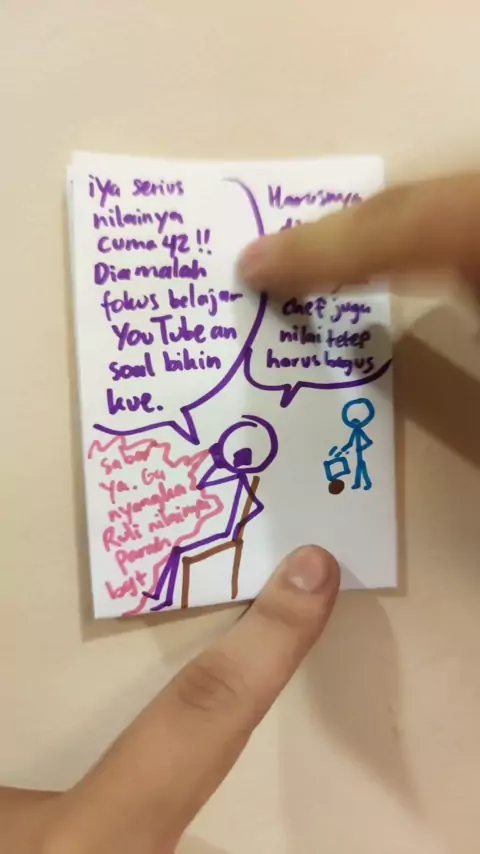 iya serius
nilainya
cuma 42!!
Dia malah
fokus belajar
YouTube an
soal bikin
kue.
Harusnya
chef juga
nilai tetep
harus bagus
sabar
ya. Gu
nyangka
Ruli nilainya
Parah
bgt